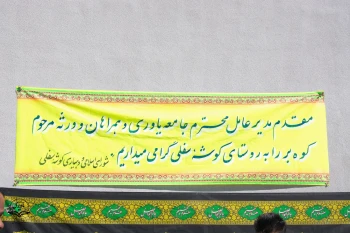 مقدم مدیر عامل محترم جامعه یاوری و همراهان و ورثه مرحوم
کوه بر را به روستای گوشه سفلی گرامی میداریم.
شورای اسلامی و دهیاری گوشه سفلی